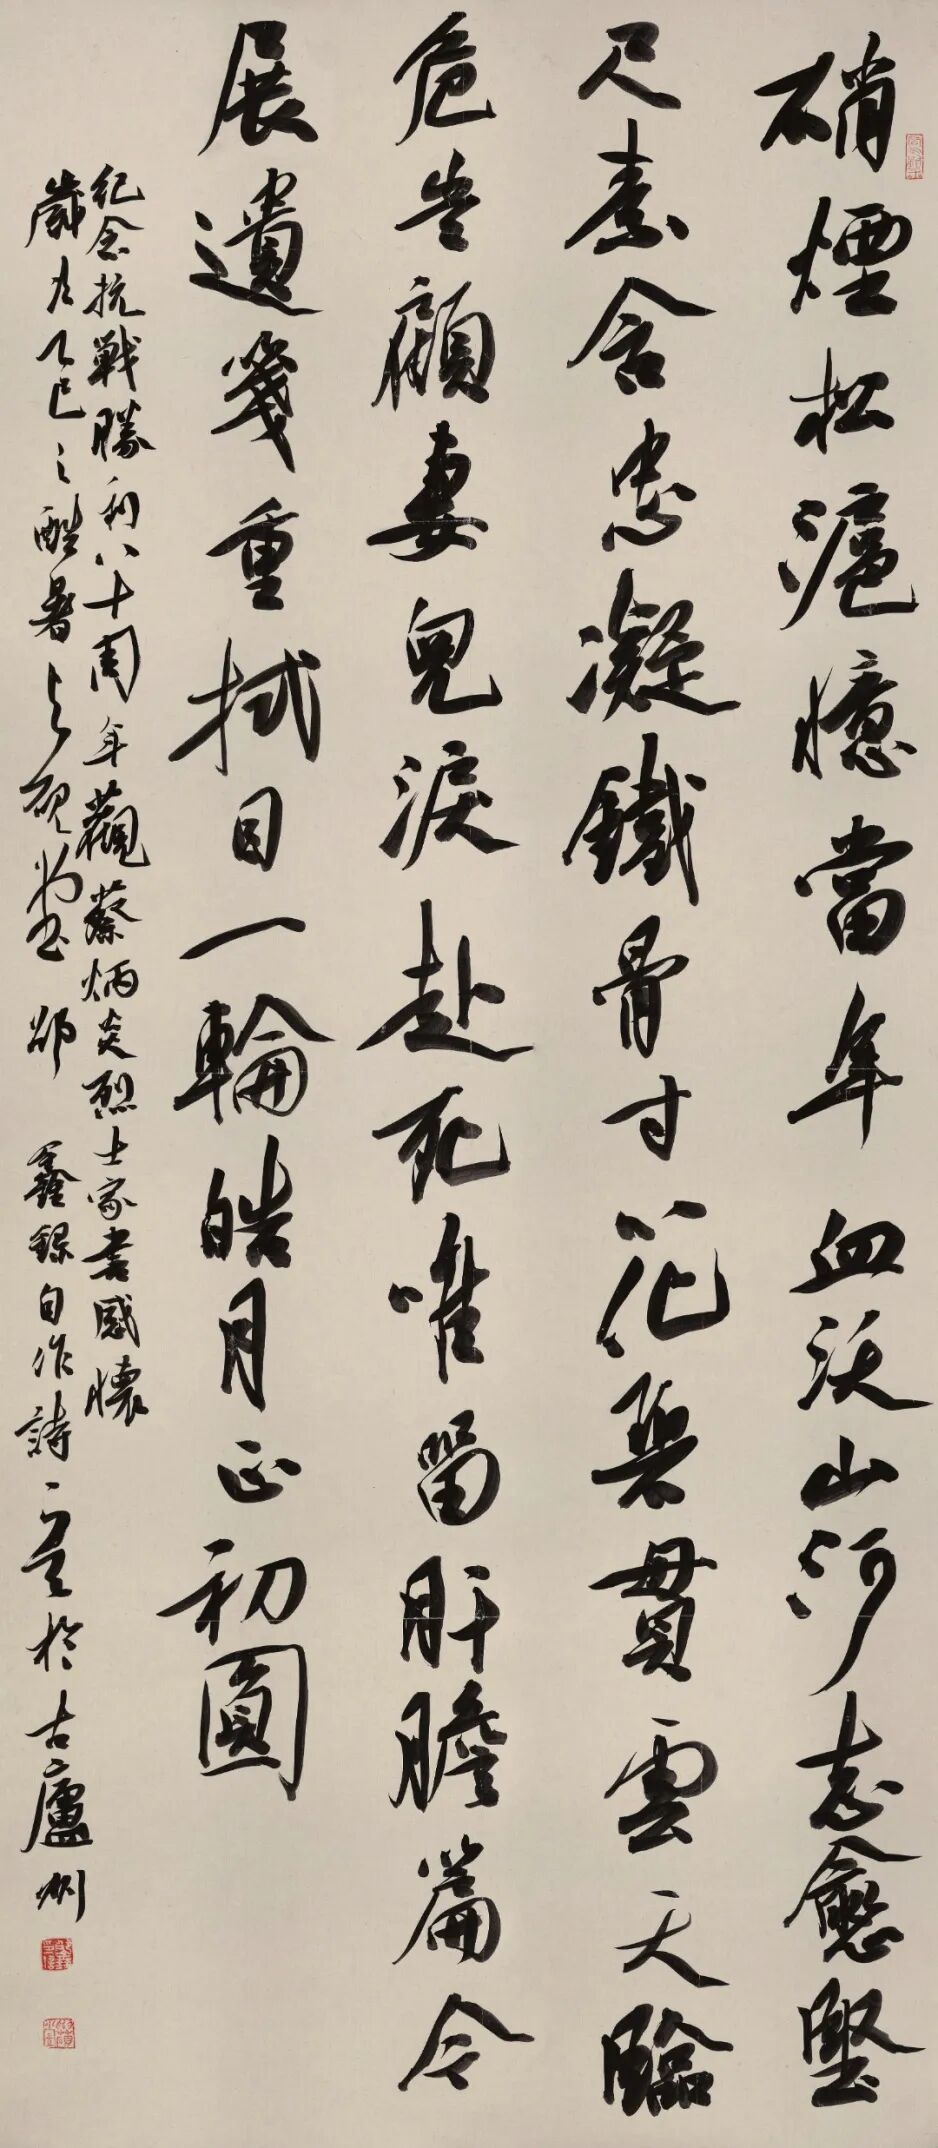 硝煙松滬憶當年血沃山河志愈堅
尺素含忠凝鐵骨寸心化碧貫雲天臨
危豈顧妻兒淚赴死唯留肝膽篇今
展遺箋重拭目一輪皓月正初圓
紀念抗戰勝利八十周年觀蔡炳炎烈士家書感懷
歲在乙巳之酷暑 鑫錄自作詩一首於古廬州